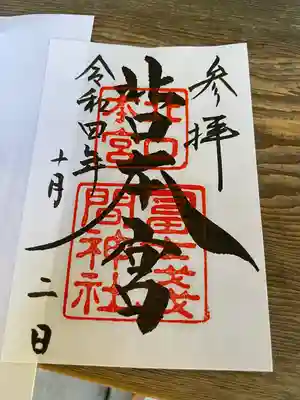 参拝
北口本宮
北口
本宮
冨士淺
間神社
令和四年
十月
二日